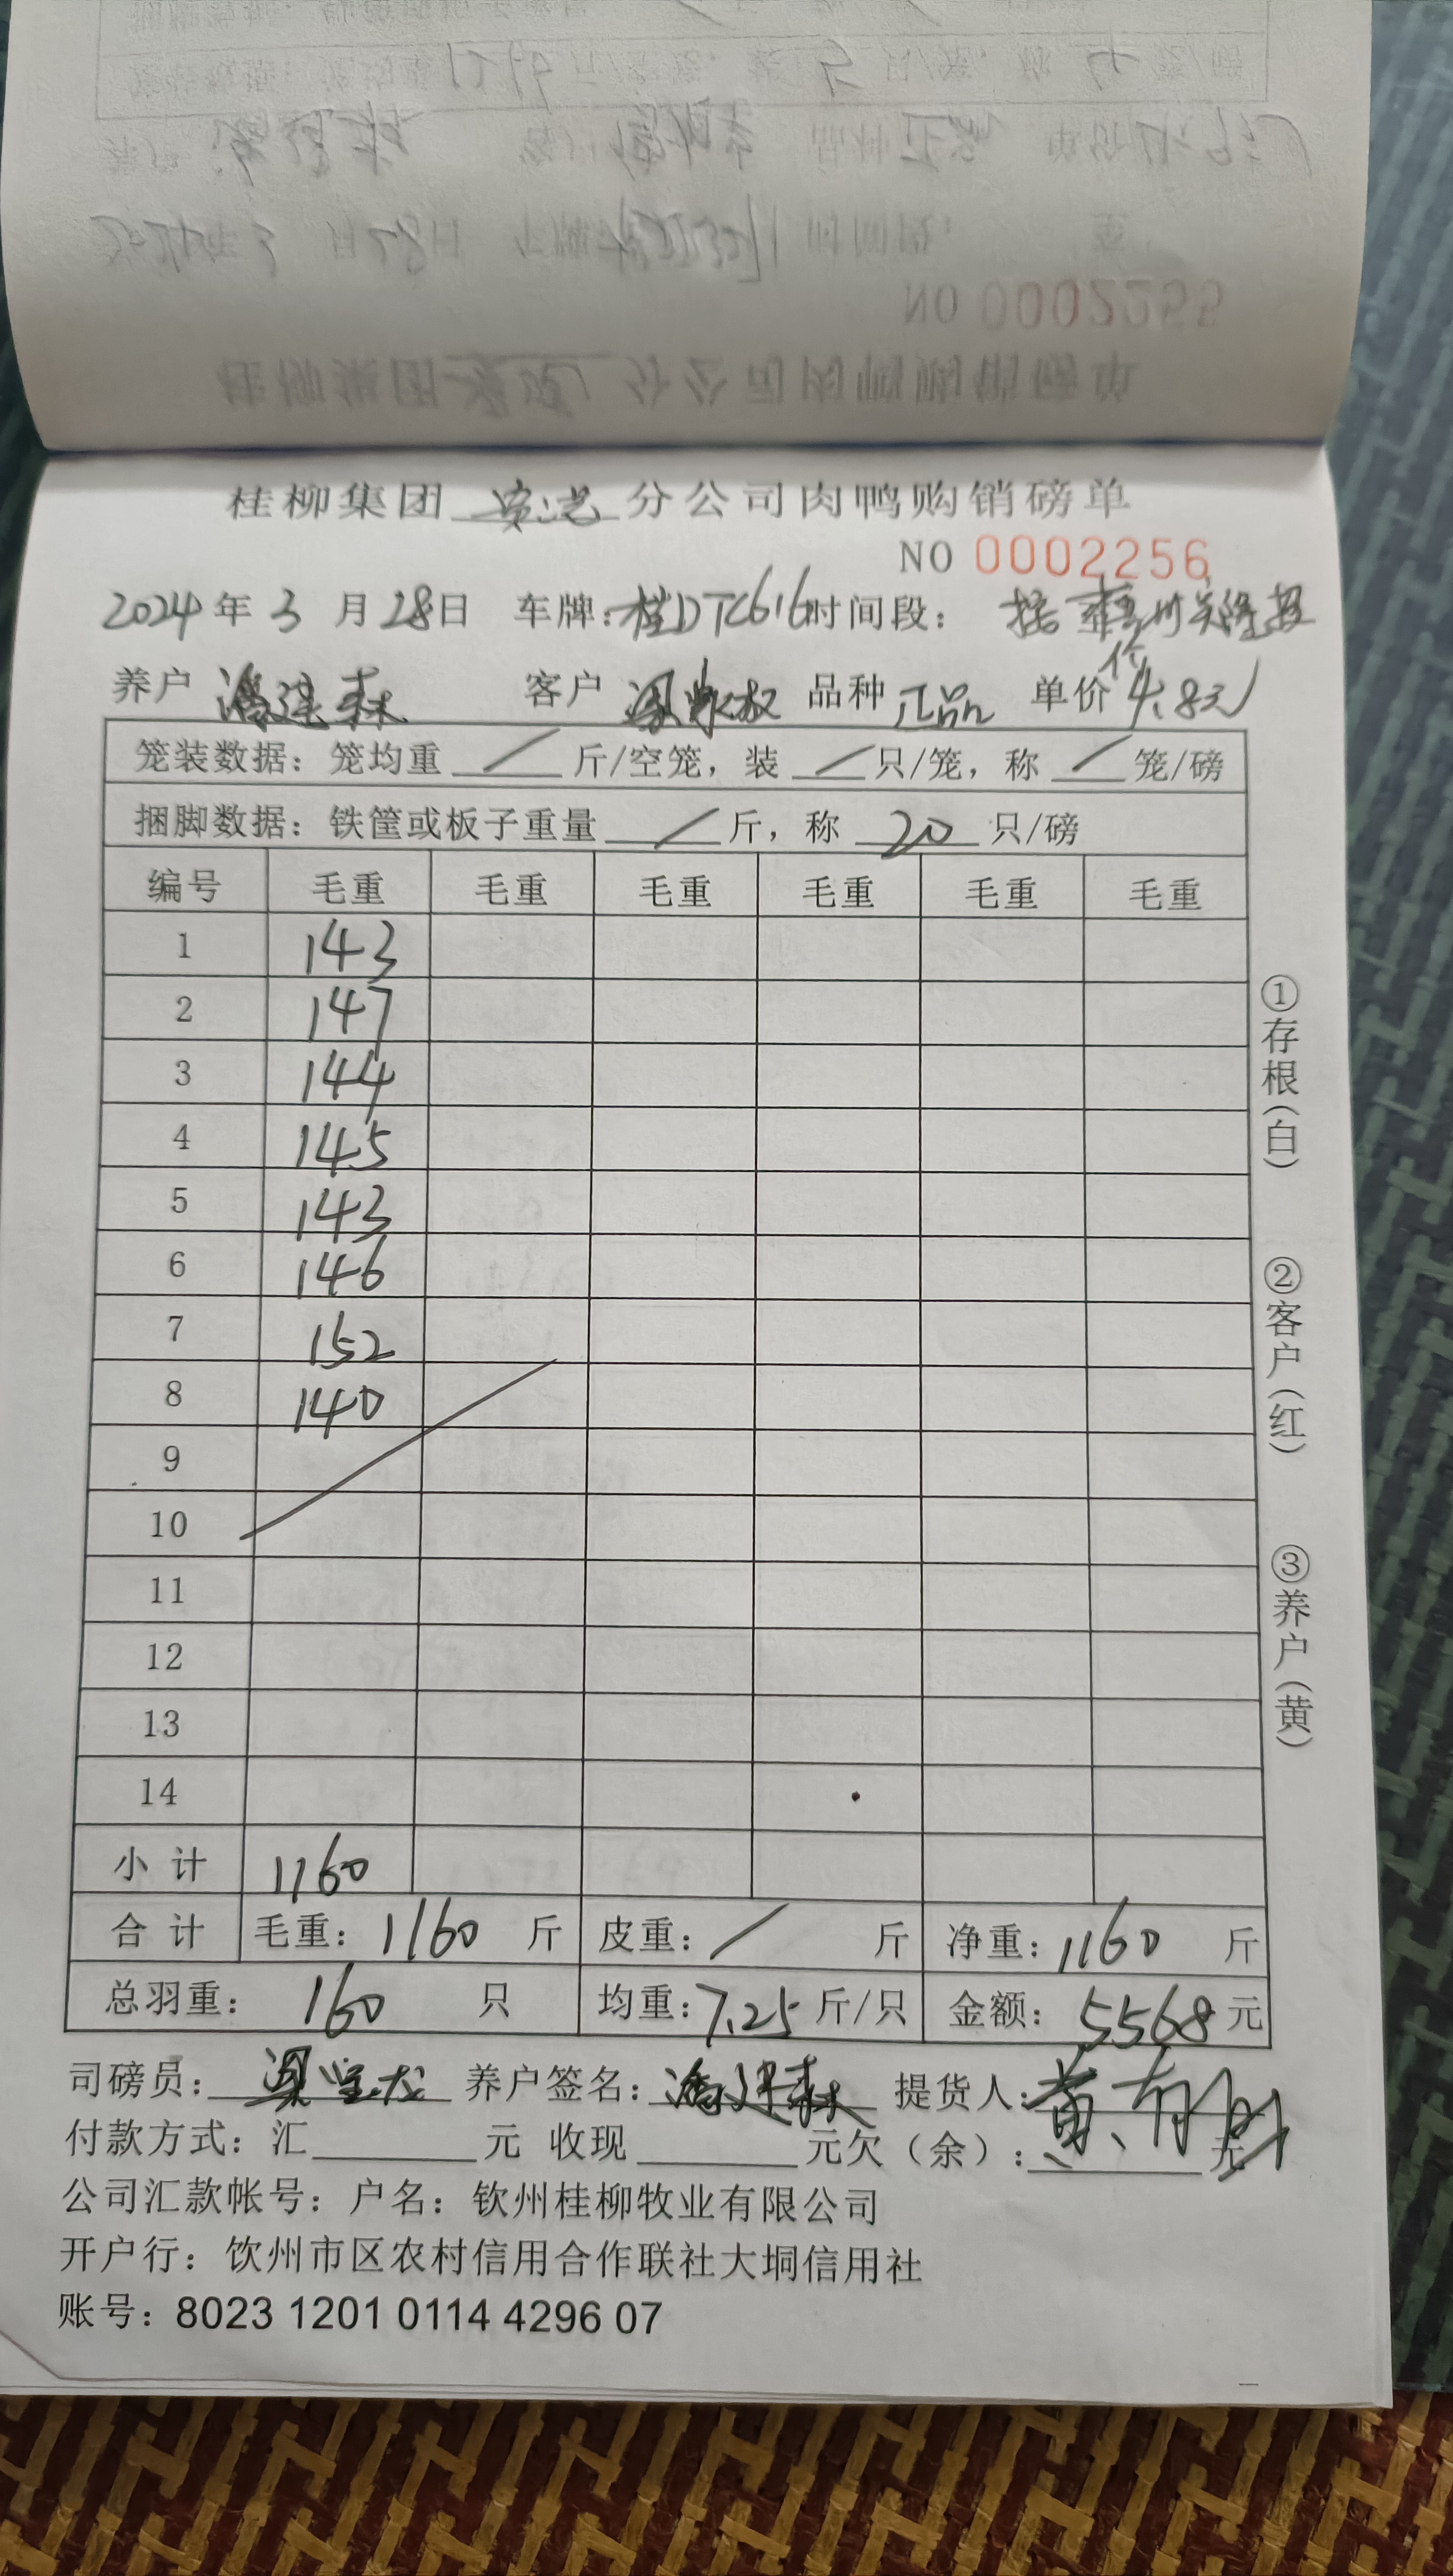 NO 0002255
桂柳集团 分公司肉鸭购销磅单
NO 0002256
2024年3月28日 车牌:桂DTC616 时间段: 按
价
养户 潘建森 客户 品种 正品 单价 4.8元
笼装数据: 笼均重 / 斤/空笼, 装 / 只/笼, 称 / 笼/磅
捆脚数据: 铁筐或板子重量 / 斤, 称 20 只/磅
编号 毛重 毛重 毛重 毛重 毛重 毛重
1 143
2 147
3 144
4 145
5 143
6 146
7 152
8 140
9
10
11
12
13
14
小计 1160
合计 毛重: 1160 斤 皮重: / 斤 净重: 1160 斤
总羽重: 160 只 均重: 7.25 斤/只 金额: 5568 元
司磅员: 养户签名: 潘建森 提货人:
付款方式: 汇 元 收现 元欠(余): 元
公司汇款帐号: 户名: 钦州桂柳牧业有限公司
开户行: 饮州市区农村信用合作联社大垌信用社
账号: 8023 1201 0114 4296 07
①存根(白)
②客户(红)
③养户(黄)